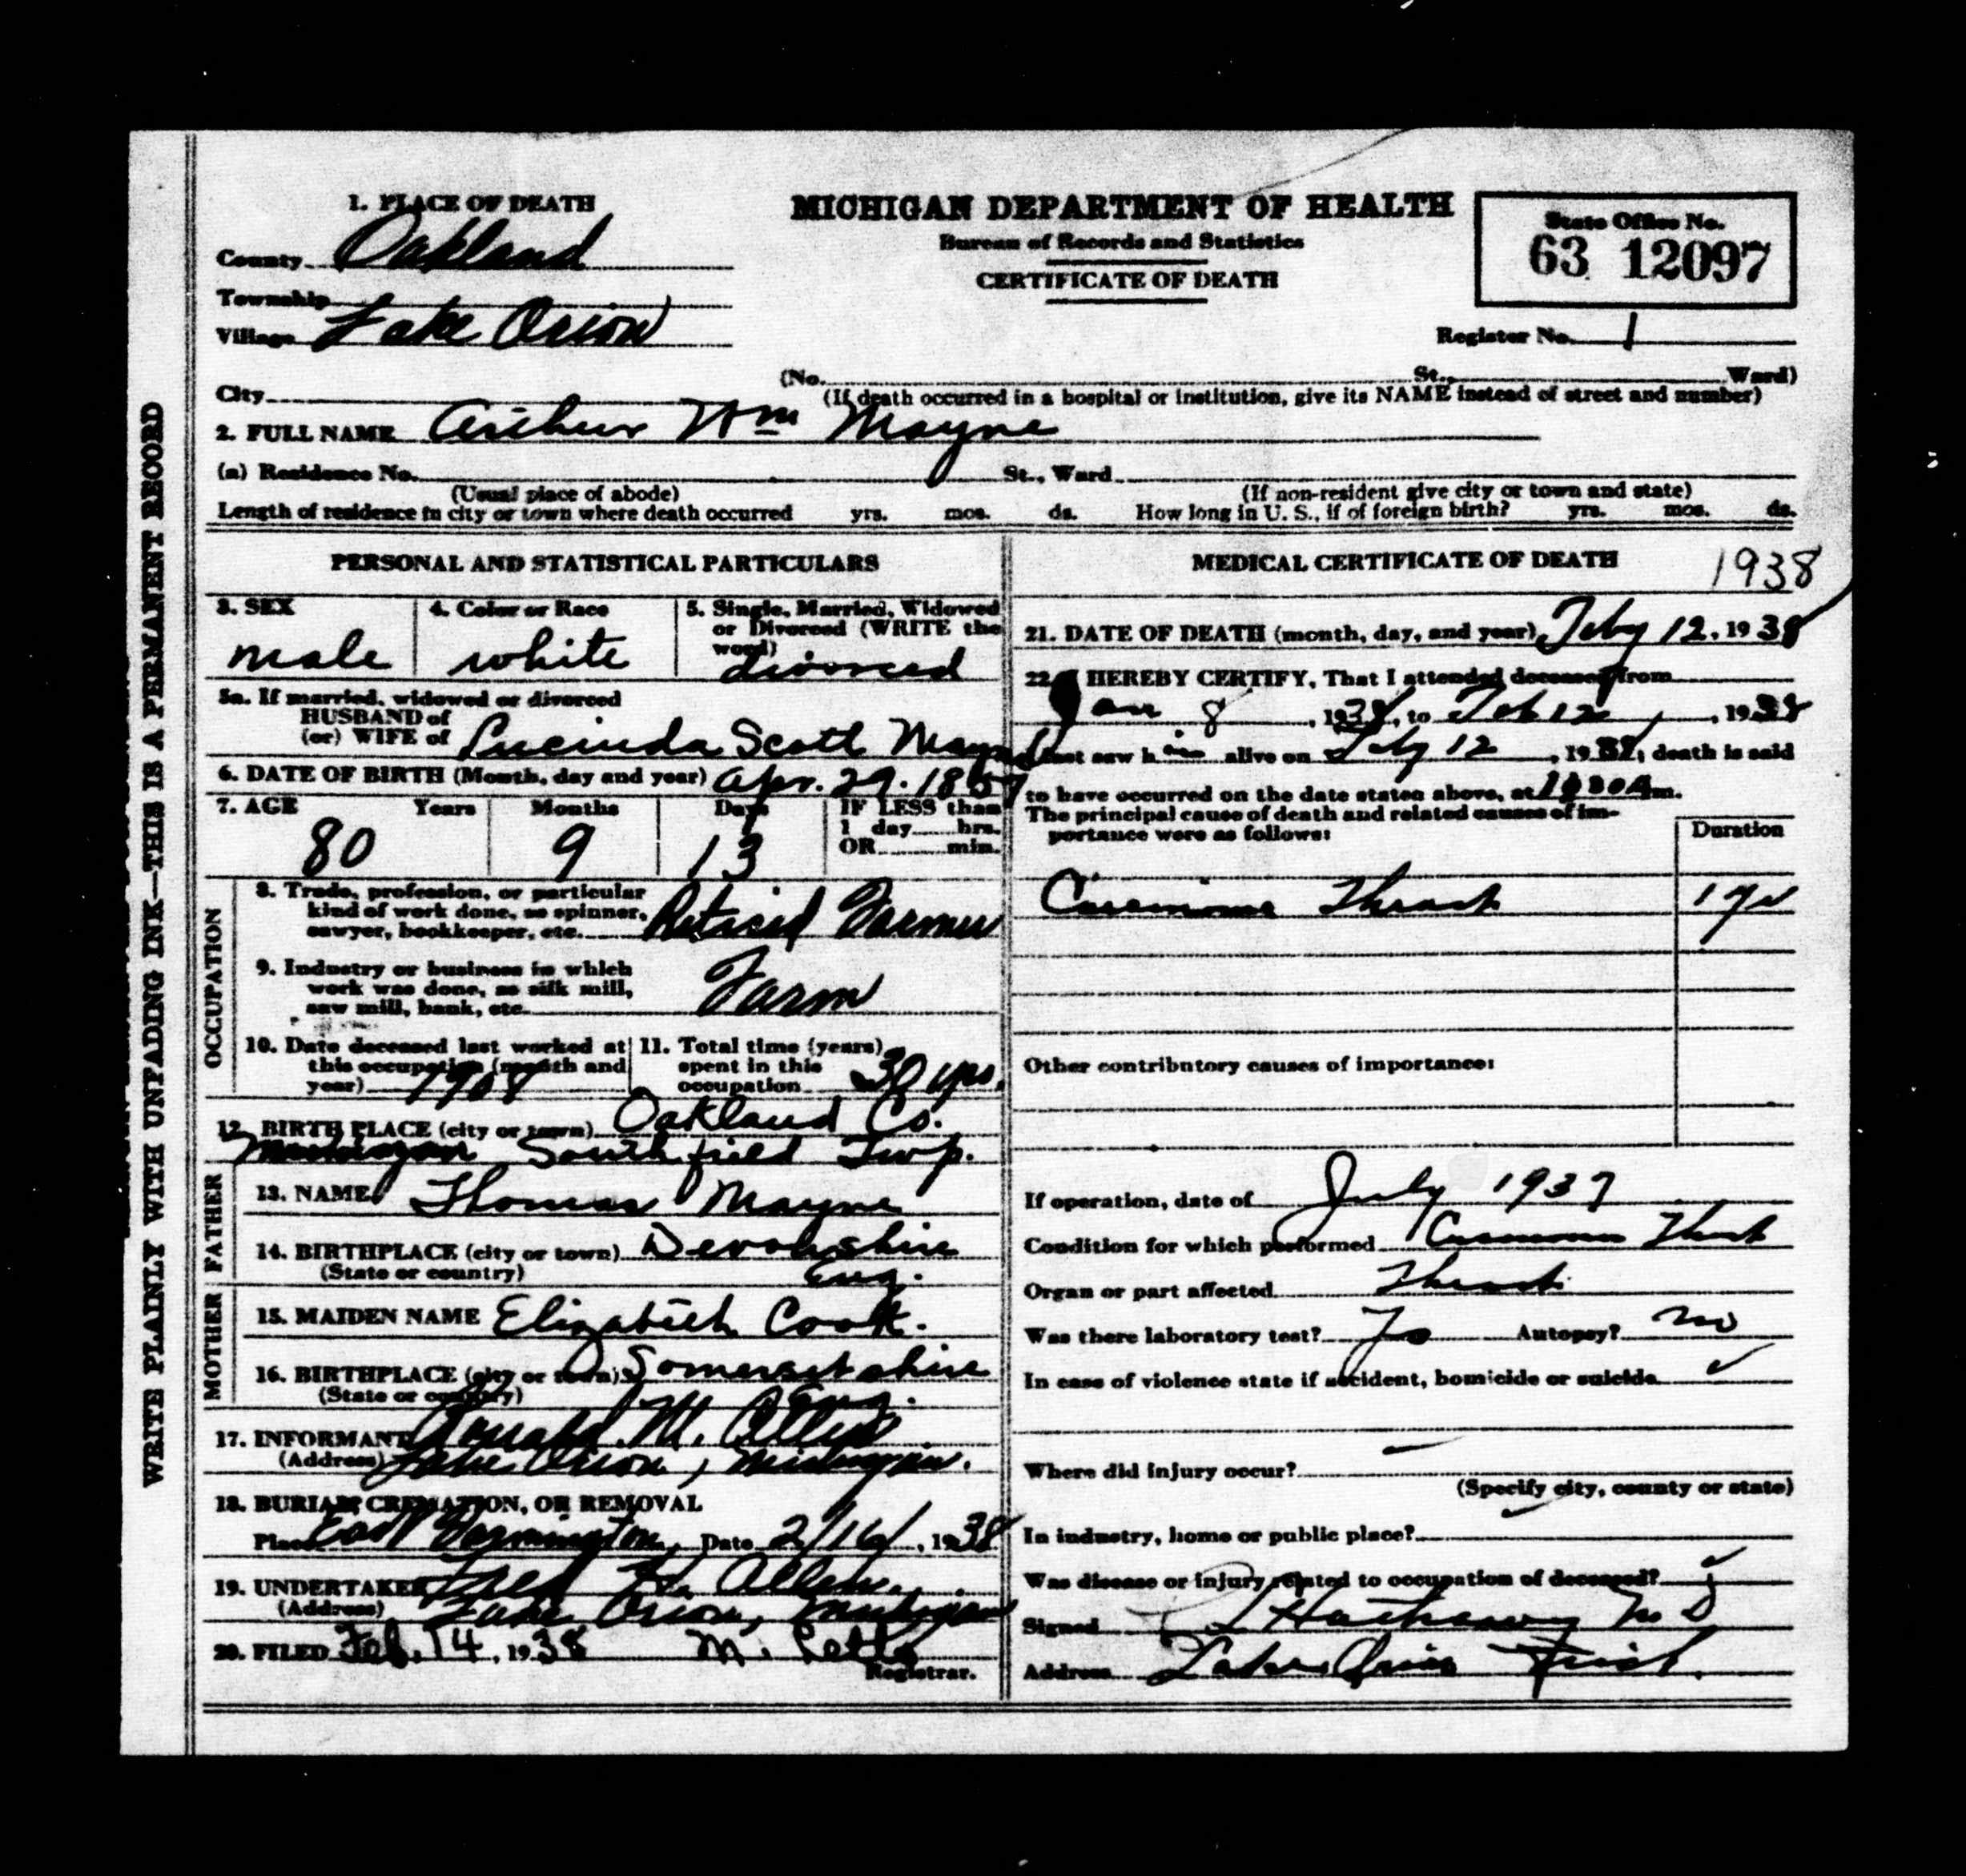 WRITE PLAINLY WITH UNFADING INK—THIS IS A PERMANENT RECORD
1. PLACE OF DEATH
County Oakland
Township
Village Lake Orion
City
MICHIGAN DEPARTMENT OF HEALTH
Bureau of Records and Statistics
CERTIFICATE OF DEATH
State Office No.
63 12097
Register No. 1
(No. St., Ward)
(If death occurred in a hospital or institution, give its NAME instead of street and number)
2. FULL NAME Arthur Wm Mayne
(a) Residence No. St., Ward
(Usual place of abode) (If non-resident give city or town and state)
Length of residence in city or town where death occurred yrs. mos. ds. How long in U. S., if of foreign birth? yrs. mos. ds.
PERSONAL AND STATISTICAL PARTICULARS
3. SEX
male
4. Color or Race
white
5. Single, Married, Widowed
or Divorced (WRITE the
word)
divorced
5a. If married, widowed or divorced
HUSBAND of
(or) WIFE of Lucinda Scott Mayne
6. DATE OF BIRTH (Month, day and year) Apr. 29. 1857
7. AGE Years Months Days IF LESS than
1 day hrs.
OR min.
80 9 13
OCCUPATION
8. Trade, profession, or particular
kind of work done, as spinner,
sawyer, bookkeeper, etc. Retired Farmer
9. Industry or business in which
work was done, as silk mill,
saw mill, bank, etc. Farm
10. Date deceased last worked at
this occupation (month and
year) 1908
11. Total time (years)
spent in this
occupation 30 yrs.
12. BIRTH PLACE (city or town) Oakland Co.
Michigan Southfield Twp.
FATHER
13. NAME Thomas Mayne
14. BIRTHPLACE (city or town) Devonshire
(State or country) Eng.
MOTHER
15. MAIDEN NAME Elizabeth Cook.
16. BIRTHPLACE (city or town) Somersetshire
(State or country) Eng.
17. INFORMANT Donald M. Allen
(Address) Lake Orion, Michigan.
18. BURIAL CREMATION, OR REMOVAL
Place East Farmington, Date 2/16/, 1938
19. UNDERTAKER Fred H. Allen,
(Address) Lake Orion, Michigan
20. FILED Feb. 14, 1938 M. Letts
Registrar.
MEDICAL CERTIFICATE OF DEATH 1938
21. DATE OF DEATH (month, day, and year) Feby 12, 1938
22. I HEREBY CERTIFY, That I attended deceased from
Jan 8, 1938, to Feb 12, 1938
I last saw him alive on Feby 12, 1938, death is said
to have occurred on the date stated above, at m.
The principal cause of death and related causes of im-
portance were as follows:
Duration
Carcinoma Throat 1 yr
Other contributory causes of importance:
If operation, date of July 1937
Condition for which performed Carcinoma Throat
Organ or part affected Throat
Was there laboratory test? Autopsy? no
In case of violence state if accident, homicide or suicide
Where did injury occur?
(Specify city, county or state)
In industry, home or public place?
Was disease or injury related to occupation of deceased?
Signed Hathaway M D
Address Lake Orion Mich.